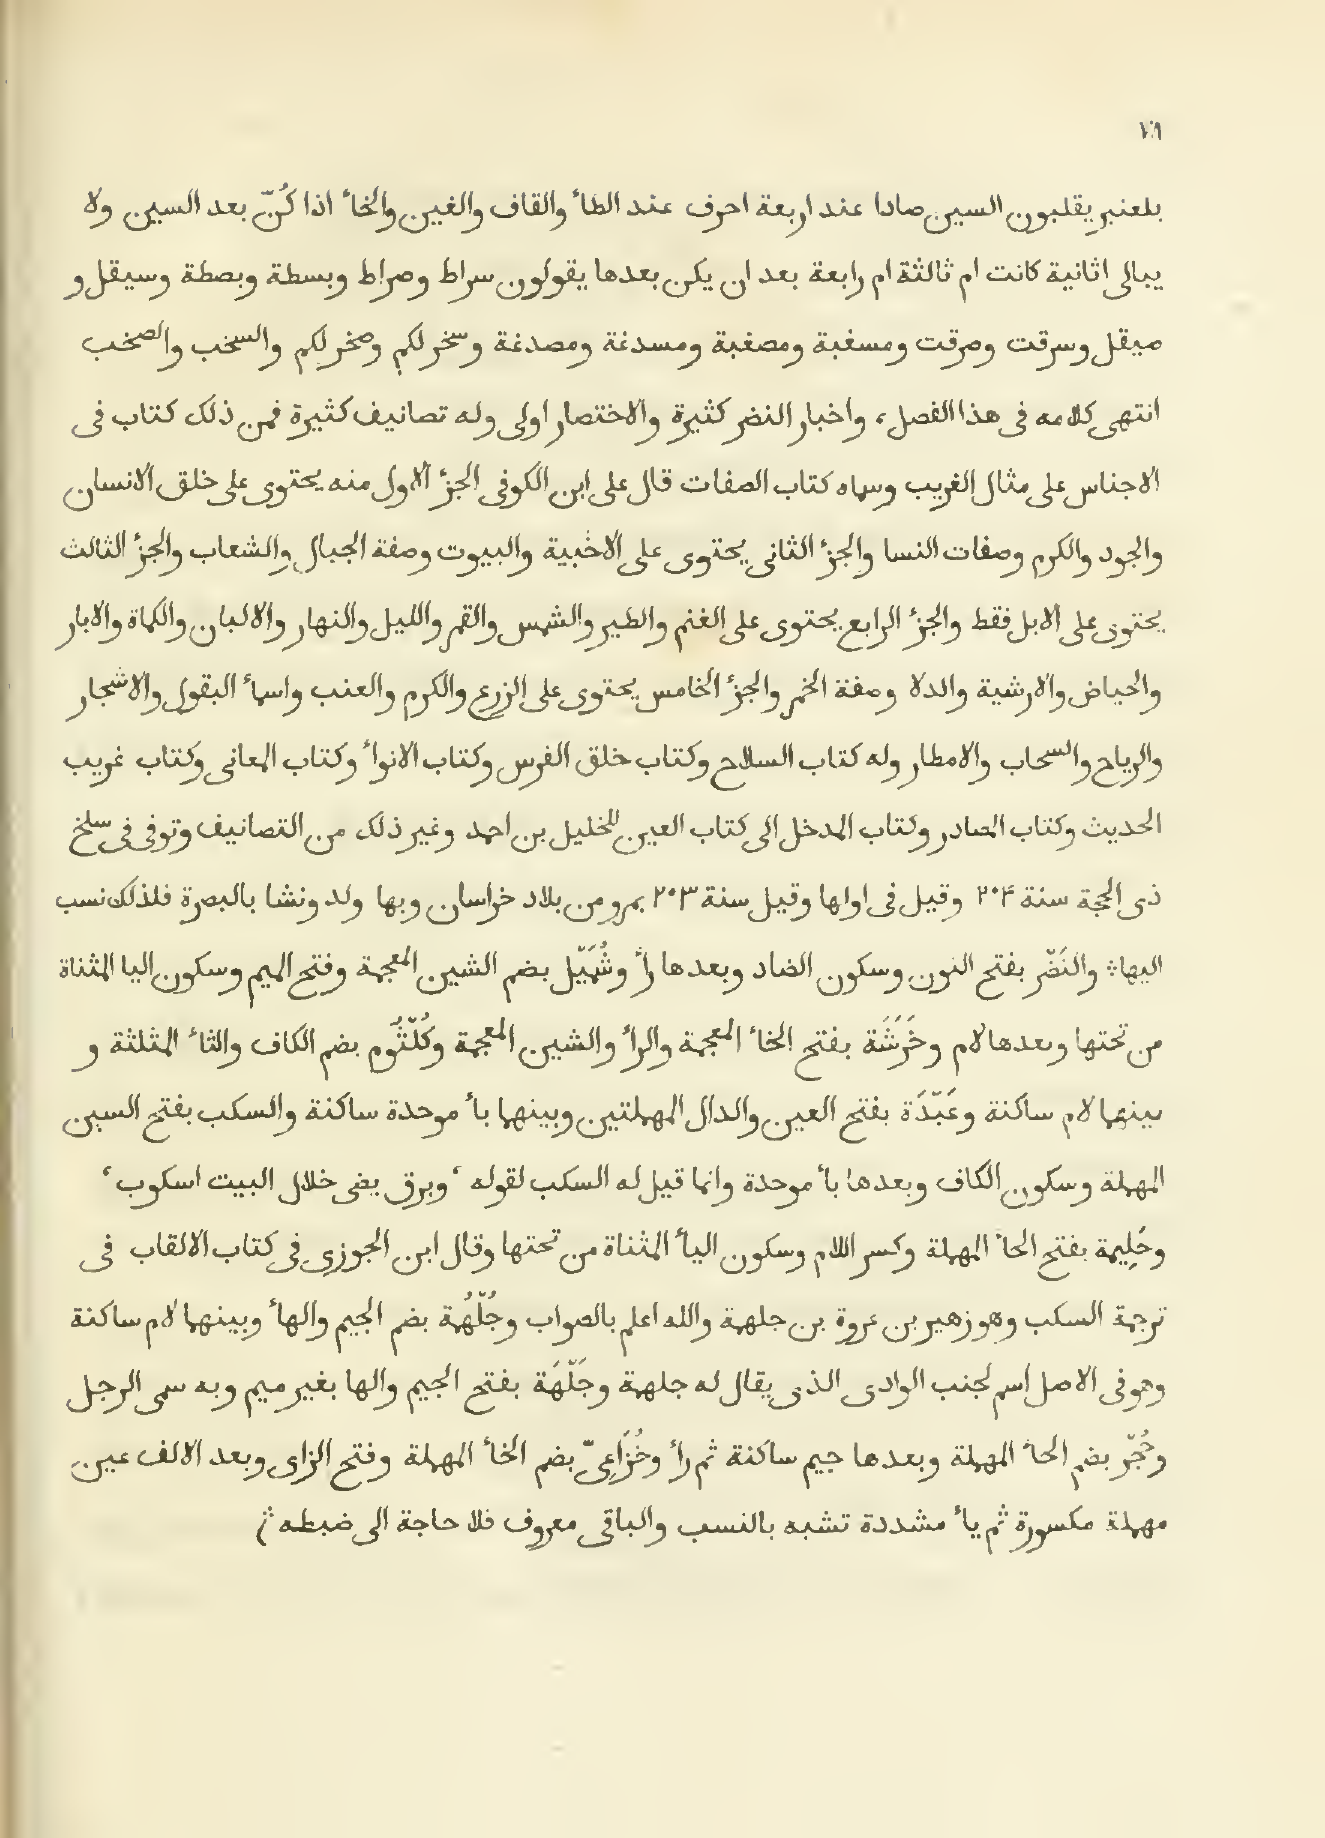 بلعنبر يقلبون السين صادا عند اربعة احرف عند الطاء والقاف والغين والخاء اذا كُنّ بعد السين ولا
يبالى اثانية كانت ام ثالثة ام رابعة بعد ان يكن بعدها يقولون سراط وصراط وبسطة وبصطة وسيقل و
صيقل وسرقت وصرقت ومسغبة ومصغبة ومسدغة ومصدغة وسخر لكم وصخر لكم والسخب والصخب
انتهى كلامه فى هذا الفصل، واخبار النضر كثيرة والاختصار اولى وله تصانيف كثيرة فمن ذلك كتاب فى
الاجناس على مثال الغريب وسماه كتاب الصفات قال على ابن الكوفى الجزء الاول منه يحتوى على خلق الانسان
والجود والكرم وصفات النسا والجزء الثانى يحتوى على الاخبية والبيوت وصفة الجبال والشعاب والجزء الثالث
يحتوى على الابل فقط والجزء الرابع يحتوى على الغنم والطير والشمس والقمر والليل والنهار والالبان والكماة والابار
والحياض والارشية والدلا وصفة الخمر والجزء الخامس يحتوى على الزرع والكرم والعنب واسماء البقول والاشجار
والرياح والسحاب والامطار وله كتاب السلاح وكتاب خلق الفرس وكتاب الانواء وكتاب المعانى وكتاب غريب
الحديث وكتاب المصادر وكتاب المدخل الى كتاب العين للخليل بن احمد وغير ذلك من التصانيف وتوفى فى سلخ
ذى الحجة سنة ٢٠٤ وقيل فى اولها وقيل سنة ٢٠٣ بمرو من بلاد خراسان وبها ولد ونشا بالبصرة فلذلك نسب
اليها ؞ والنَضْر بفتح النون وسكون الضاد وبعدها راء وشُمَيْل بضم الشين المعجمة وفتح الميم وسكون اليا المثناة
من تحتها وبعدها لام وخَرَشَة بفتح الخاء المعجمة والراء والشين المعجمة وكُلْثُوم بضم الكاف والثاء المثلثة و
بينهما لام ساكنة وعَبْدَة بفتح العين والدال المهملتين وبينهما باء موحدة ساكنة والسكب بفتح السين
المهملة وسكون الكاف وبعدها باء موحدة وانما قيل له السكب لقوله ، وبرق يضى خلال البيت اسكوب ،
وحَلِيمة بفتح الحاء المهملة وكسر اللام وسكون الياء المثناة من تحتها وقال ابن الجوزى فى كتاب الالقاب فى
ترجمة السكب وهو زهير بن عروة بن جلهمة والله اعلم بالصواب وجُلْهُمة بضم الجيم والهاء وبينهما لام ساكنة
وهو فى الاصل اسم لجنب الوادى الذى يقال له جلهمة وجَلْهَة بفتح الجيم والها بغير ميم وبه سمى الرجل
وحُجْر بضم الحاء المهملة وبعدها جيم ساكنة ثم راء وخُزَاعِىّ بضم الخاء المهملة وفتح الزاى وبعد الالف عين
مهملة مكسورة ثم ياء مشددة تشبه بالنسب والباقى معروف فلا حاجة الى ضبطه ؞